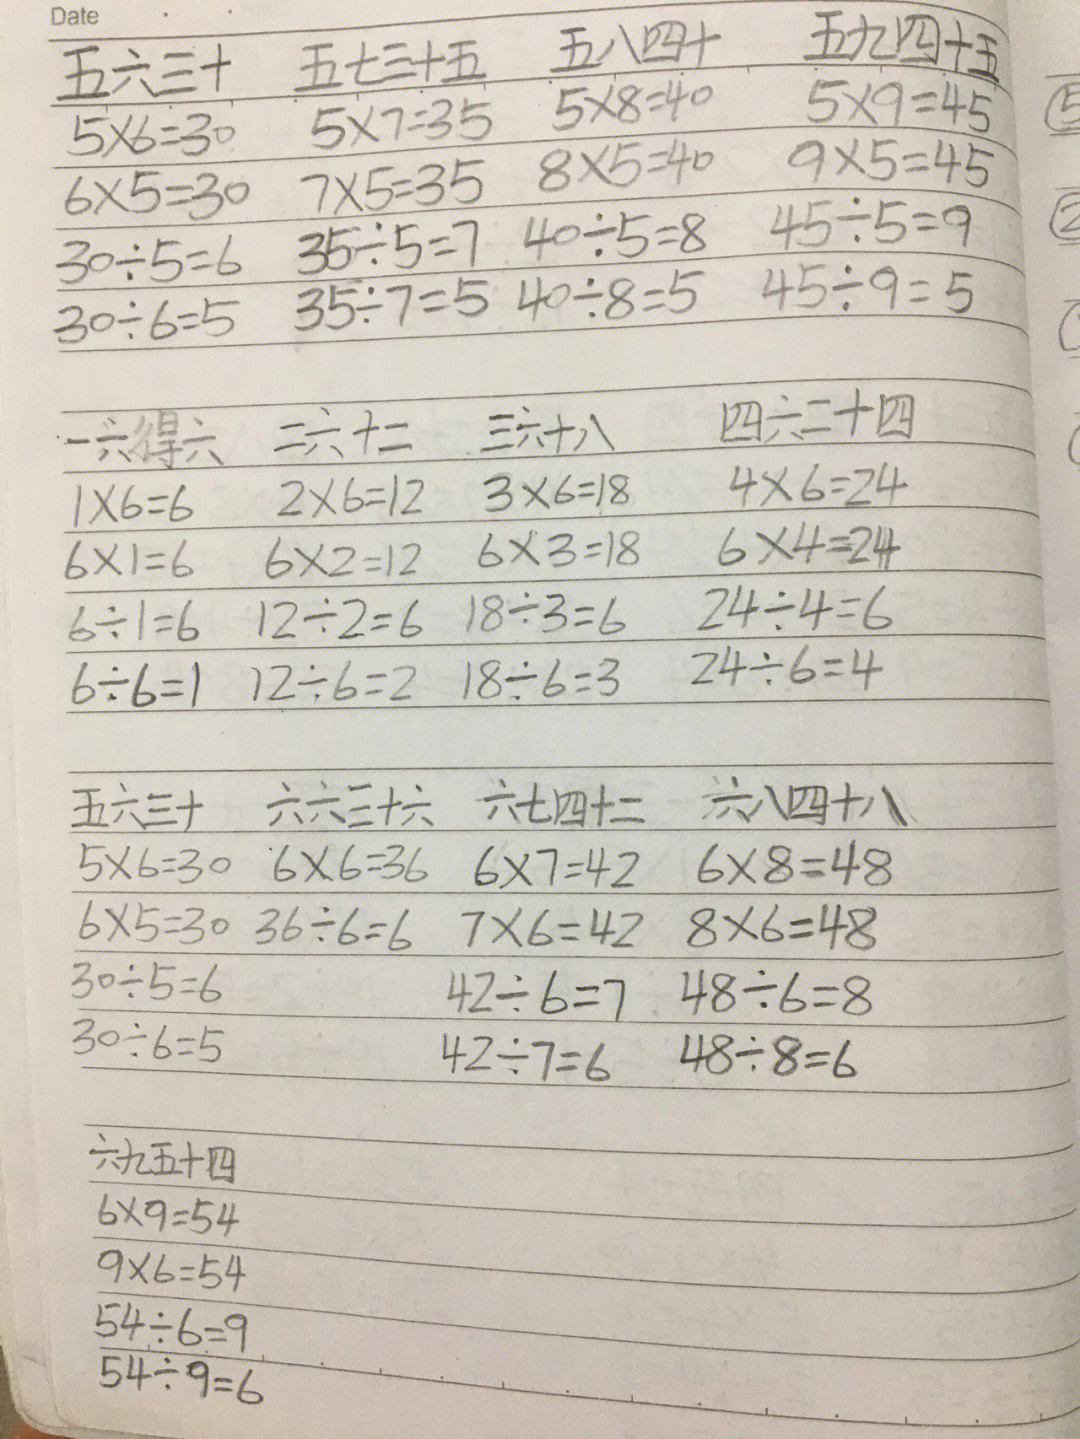 Date
五六三十 五七三十五 五八四十 五九四十五
5×6=30 5×7=35 5×8=40 5×9=45
6×5=30 7×5=35 8×5=40 9×5=45
30÷5=6 35÷5=7 40÷5=8 45÷5=9
30÷6=5 35÷7=5 40÷8=5 45÷9=5
一六得六 二六十二 三六十八 四六二十四
1×6=6 2×6=12 3×6=18 4×6=24
6×1=6 6×2=12 6×3=18 6×4=24
6÷1=6 12÷2=6 18÷3=6 24÷4=6
6÷6=1 12÷6=2 18÷6=3 24÷6=4
五六三十 六六三十六 六七四十二 六八四十八
5×6=30 6×6=36 6×7=42 6×8=48
6×5=30 36÷6=6 7×6=42 8×6=48
30÷5=6 42÷6=7 48÷6=8
30÷6=5 42÷7=6 48÷8=6
六九五十四
6×9=54
9×6=54
54÷6=9
54÷9=6